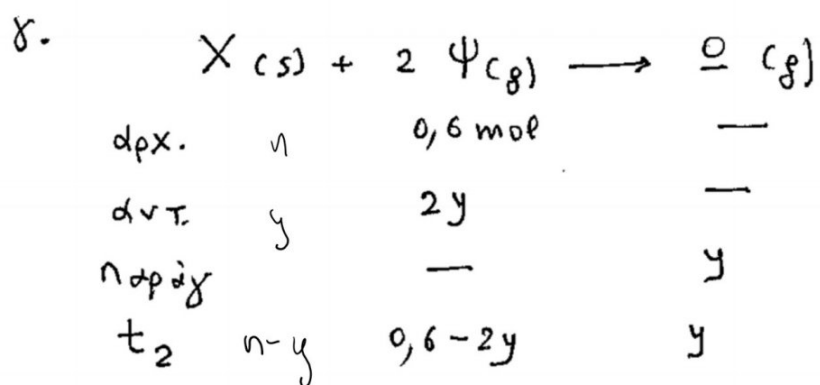 γ.
X (s) + 2 Ψ(g) ⟶ Ω (g)
αρχ. n 0,6 mol —
αντ. y 2y —
παράγ — y
t₂ n-y 0,6-2y y